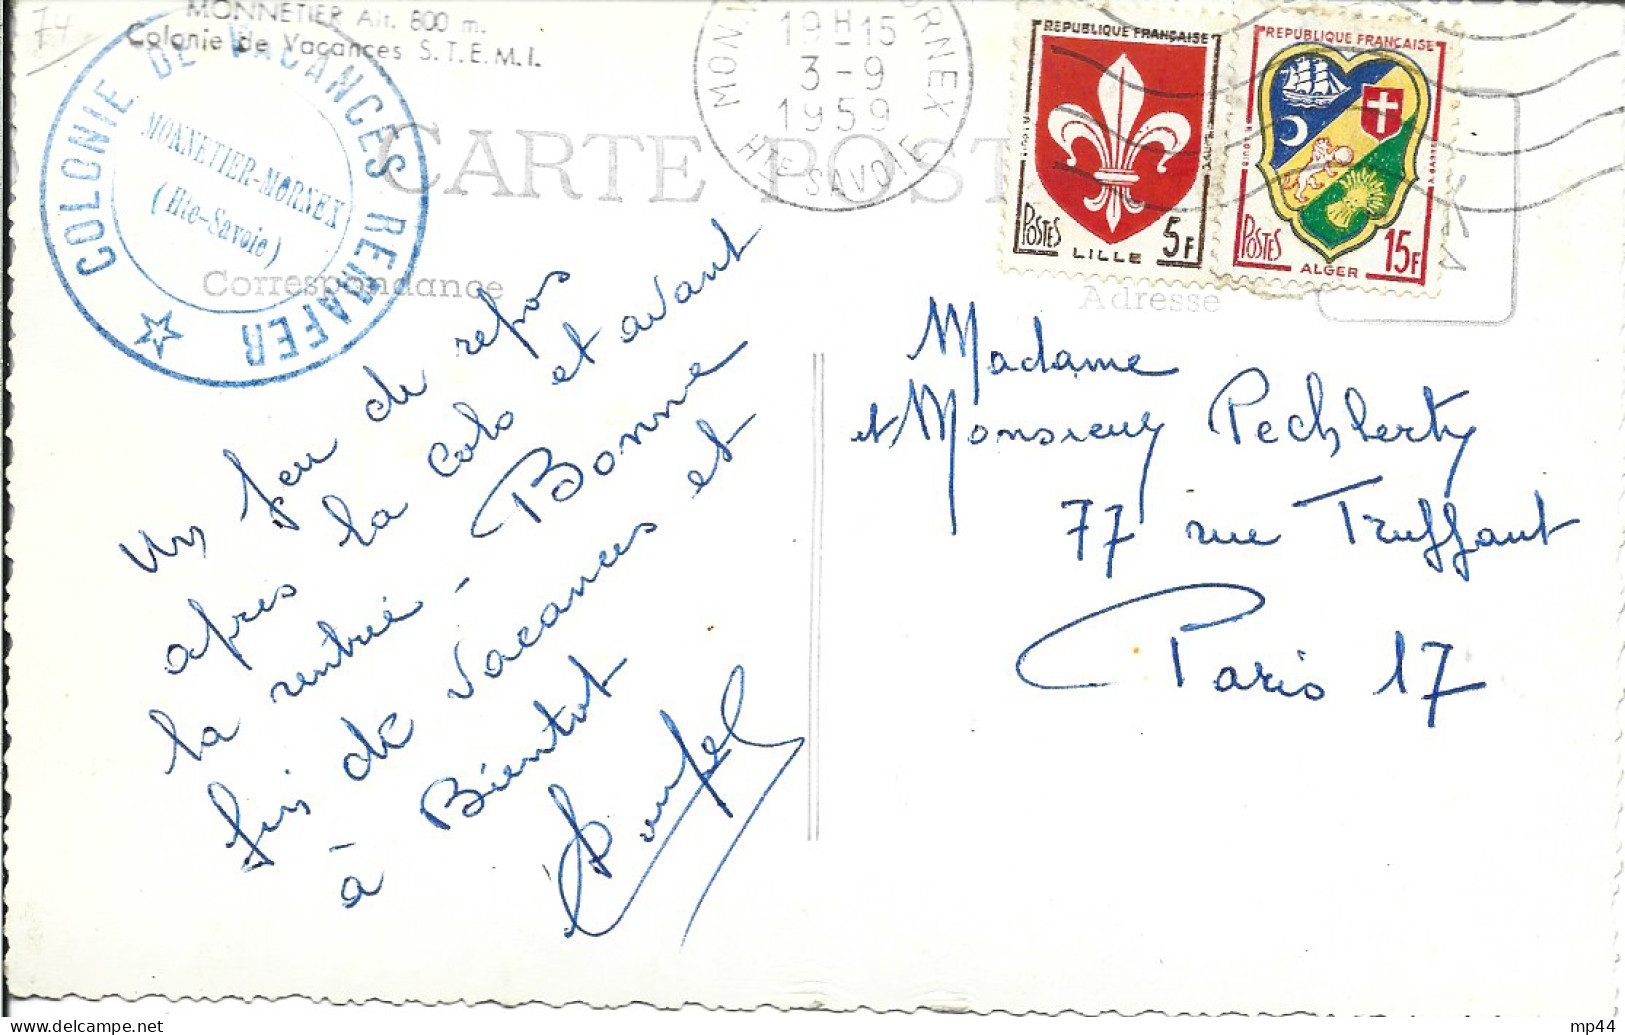 74
MONNETIER Alt. 800 m.
Colonie de Vacances S.T.E.M.I.
COLONIE DE VACANCES REMAFER
MONNETIER-MORNEX
(Hte-Savoie)
CARTE POST
Correspondance
19H15
3-9
1959
HTE SAVOIE
REPUBLIQUE FRANÇAISE
POSTES
5F
LILLE
REPUBLIQUE FRANÇAISE
POSTES
15F
ALGER
Adresse
Un peu de repos
après la colo et avant
la rentrée - Bonne
fin de vacances et
à Bientot
Madame
et Monsieur Pechberty
77 rue Truffaut
Paris 17
mp44